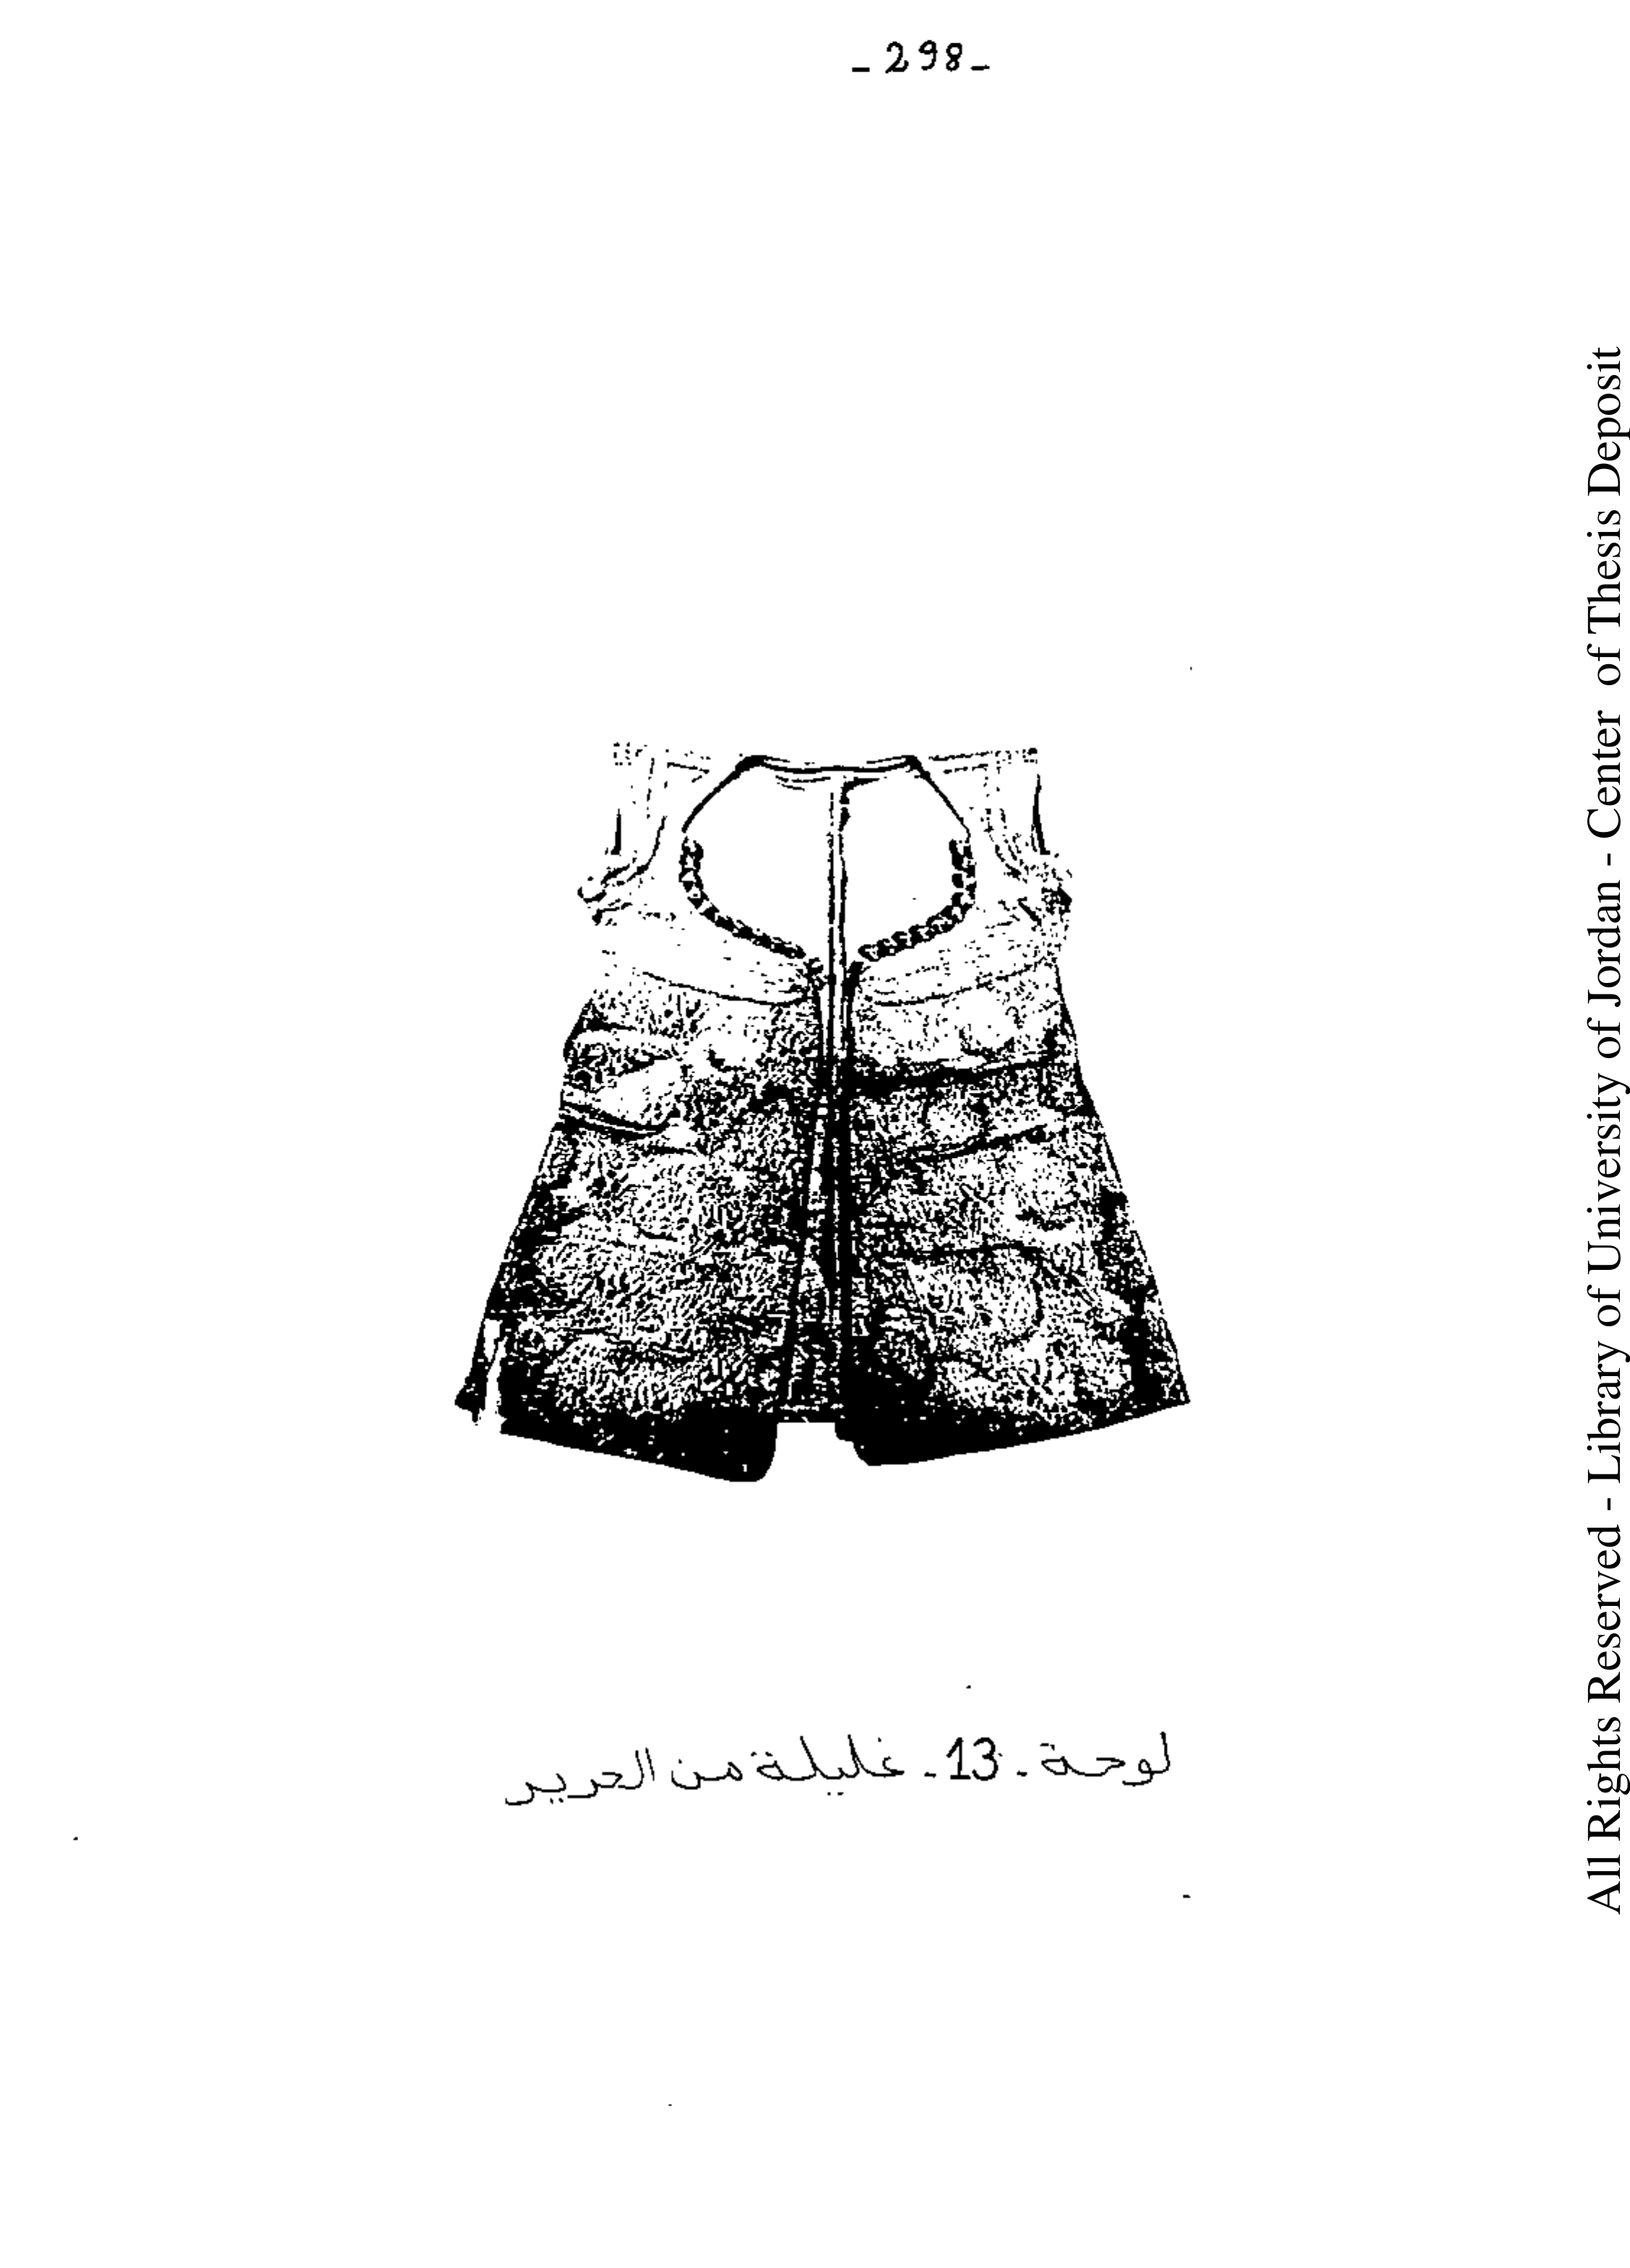 _ 298 _
لوحة - 13 - غليلة من الحرير
All Rights Reserved - Library of University of Jordan - Center of Thesis Deposit